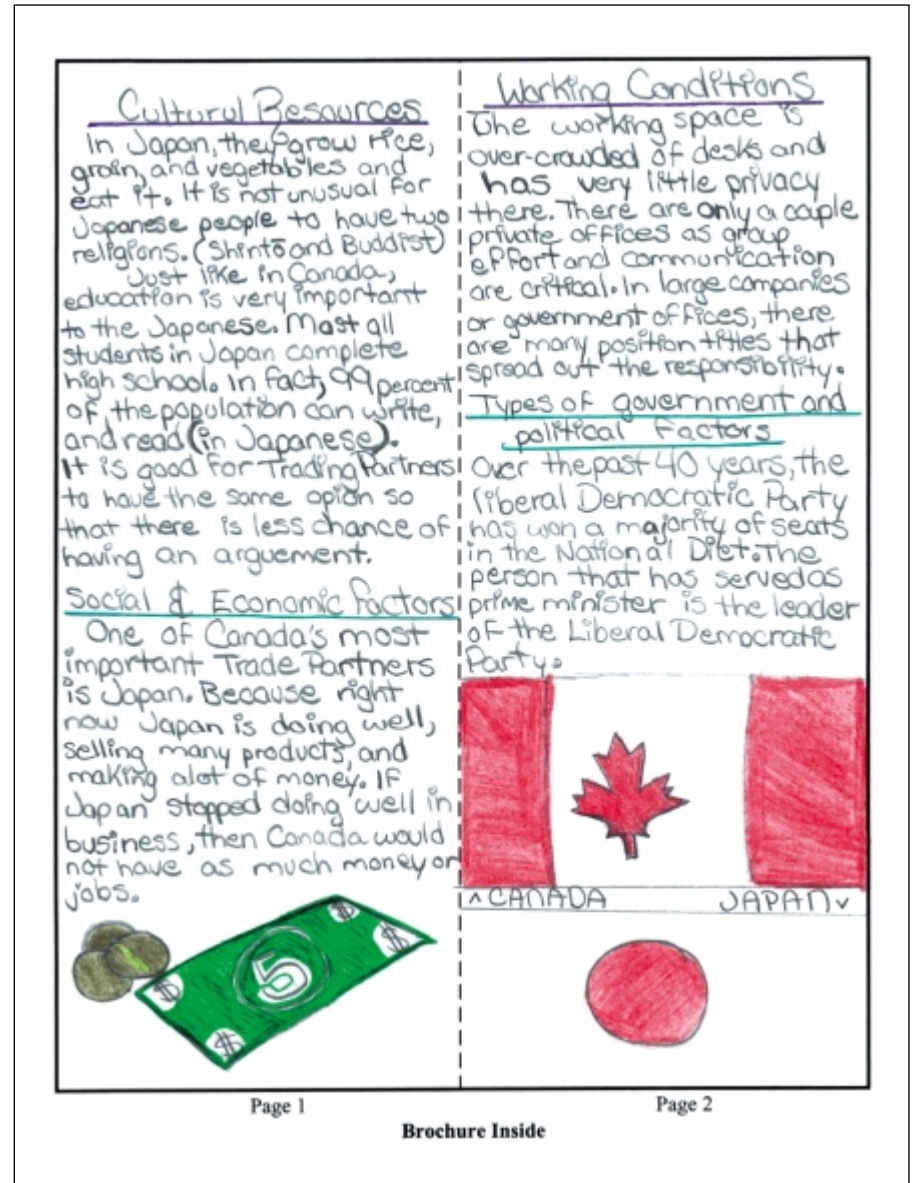 Cultural Resources
In Japan, they grow rice,
grain, and vegetables and
eat it. It is not unusual for
Japanese people to have two
religions. (Shintō and Buddist)
Just like in Canada,
education is very important
to the Japanese. Most all
students in Japan complete
high school. In fact, 99 percent
of the population can write,
and read (in Japanese).
It is good for Trading Partners
to have the same opion so
that there is less chance of
having an arguement.
Social & Economic Factors
One of Canada's most
important Trade Partners
is Japan. Because right
now Japan is doing well,
selling many products, and
making alot of money. If
Japan stopped doing well in
business, then Canada would
not have as much money or
jobs.
$ $ 5 $ $
Page 1
Working Conditions
The working space is
over-crowded of desks and
has very little privacy
there. There are only a couple
private offices as group
effort and communication
are critical. In large companies
or government offices, there
are many position titles that
spread out the responsibility.
Types of government and
political factors
Over the past 40 years, the
liberal Democratic Party
has won a majority of seats
in the National Diet. The
person that has served as
prime minister is the leader
of the Liberal Democratic
Party.
^ CANADA JAPAN v
Page 2
Brochure Inside